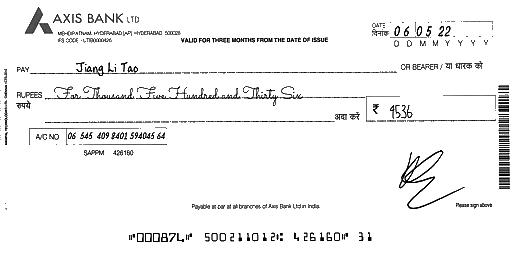 AXIS BANK LTD
MEHDIPATNAM, HYDERABAD [AP] HYDERABAD 500028
IFS CODE - UTIB0000426
VALID FOR THREE MONTHS FROM THE DATE OF ISSUE
DATE
दिनांक 06 05 22
D D M M Y Y Y Y
PAY Jiang Li Tao OR BEARER / या धारक को
RUPEES For Thousand Five Hundred and Thirty Six
रुपये अदा करें ₹ 4536
A/C NO 06 545 409 8401 594045 64
SAPPM 426160
Payable at par at all branches of Axis Bank Ltd in India.
Please sign above
⑈000874⑈ 500211012⑆ 426160⑈ 31